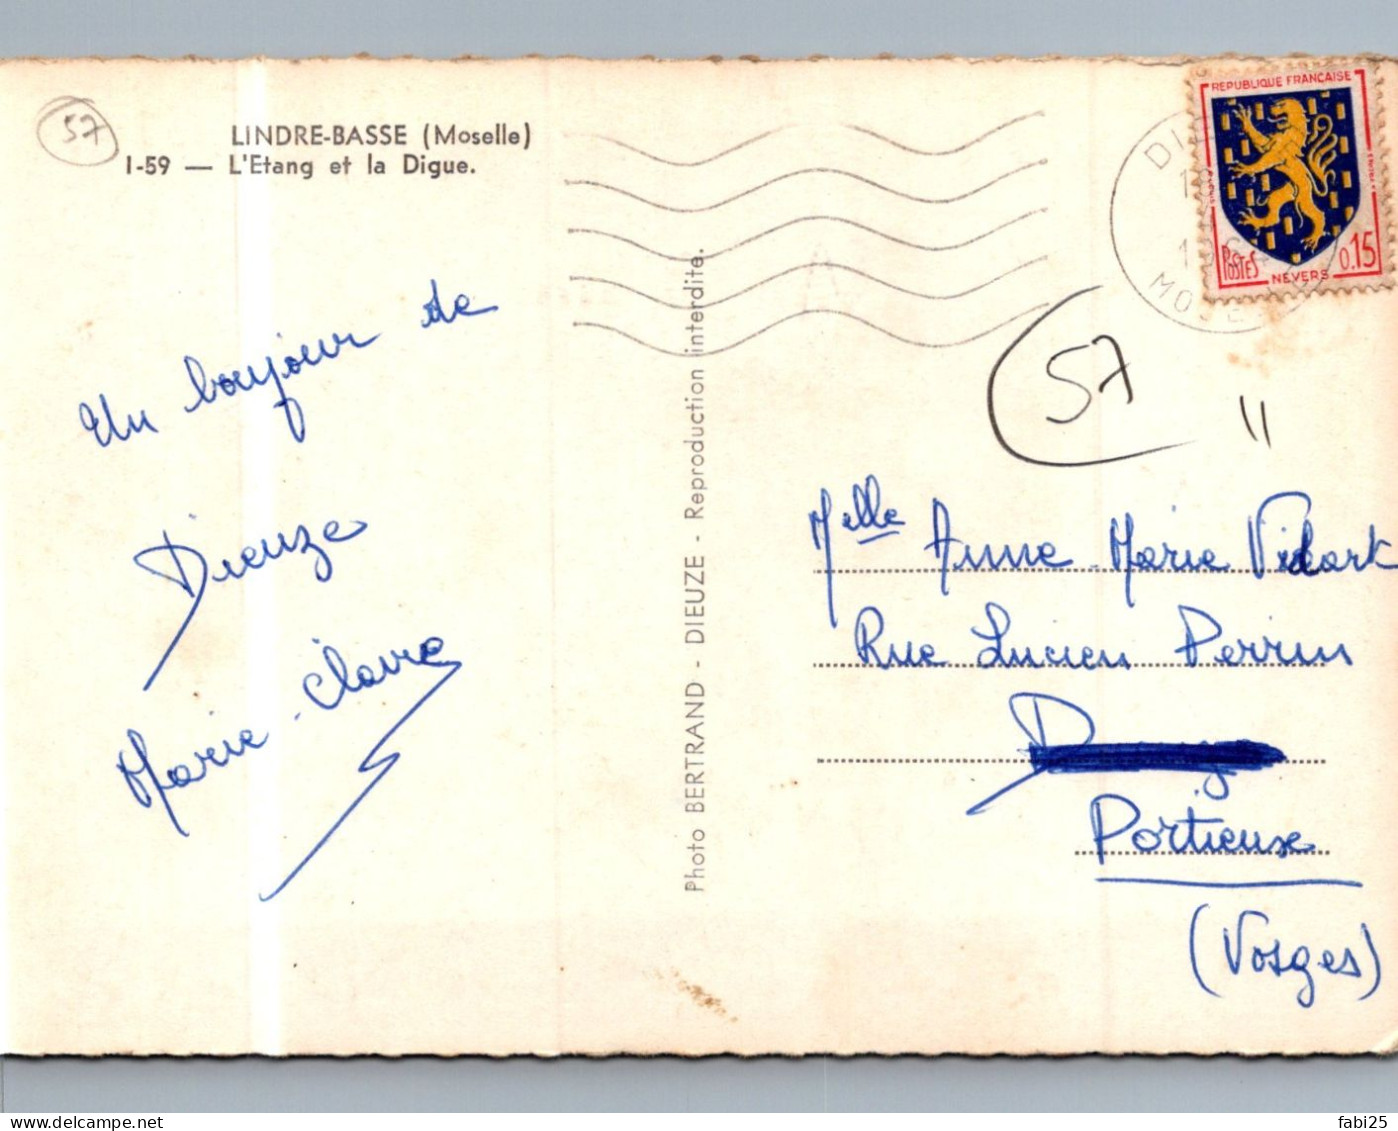 57
LINDRE-BASSE (Moselle)
I-59 — L'Etang et la Digue.
Un bonjour de
Dieuze
Marie-Claire
Photo BERTRAND - DIEUZE - Reproduction interdite.
REPUBLIQUE FRANÇAISE
POSTES
NEVERS
0.15
57
Melle Anne-Marie Vidart
Rue Lucien Perrin
Portieux
(Vosges)
delcampe.net
fabi25